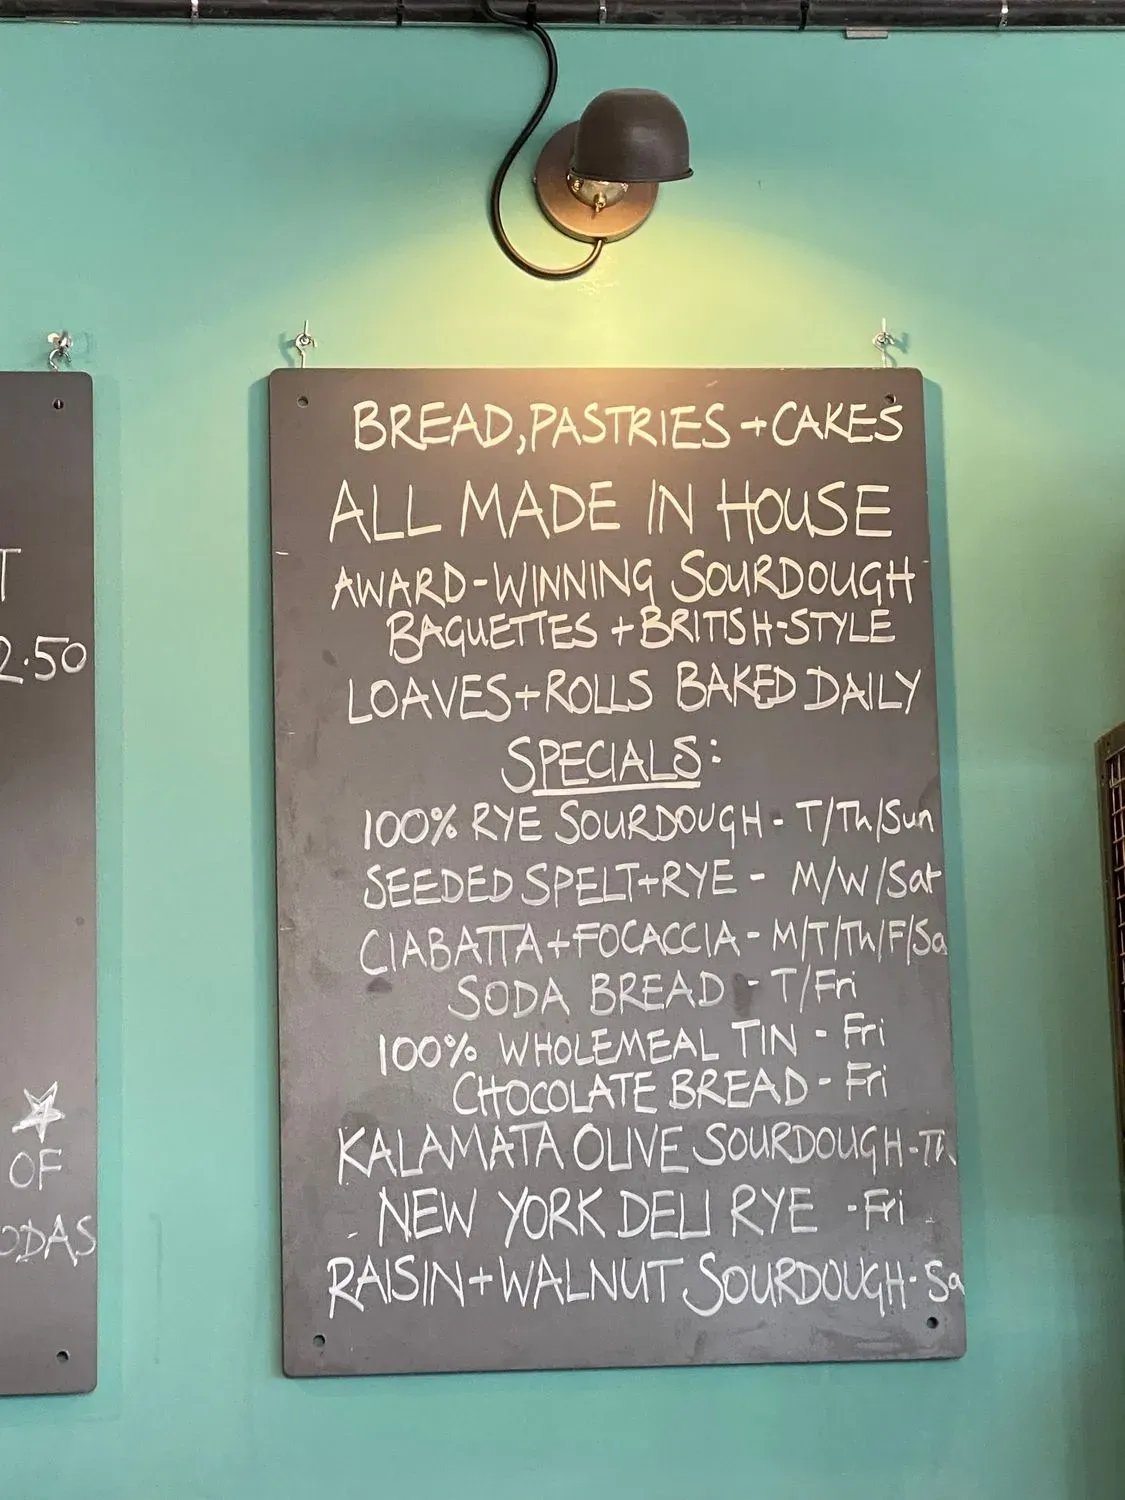 T
2.50
OF
ODAS
BREAD, PASTRIES + CAKES
ALL MADE IN HOUSE
AWARD-WINNING SOURDOUGH
BAGUETTES + BRITISH-STYLE
LOAVES + ROLLS BAKED DAILY
SPECIALS:
100% RYE SOURDOUGH - T/Th/Sun
SEEDED SPELT + RYE - M/W/Sat
CIABATTA + FOCACCIA - M/T/Th/F/Sa
SODA BREAD - T/Fri
100% WHOLEMEAL TIN - Fri
CHOCOLATE BREAD - Fri
KALAMATA OLIVE SOURDOUGH - Th
NEW YORK DELI RYE - Fri
RAISIN + WALNUT SOURDOUGH - Sa